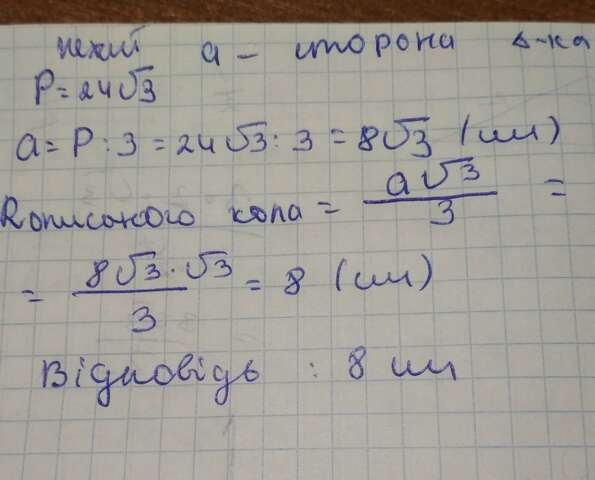 нехай a - сторона Δ-ка
P = 24√3
a = P : 3 = 24√3 : 3 = 8√3 (см)
R описаного кола = a√3/3 =
= 8√3·√3/3 = 8 (см)
Відповідь : 8 см